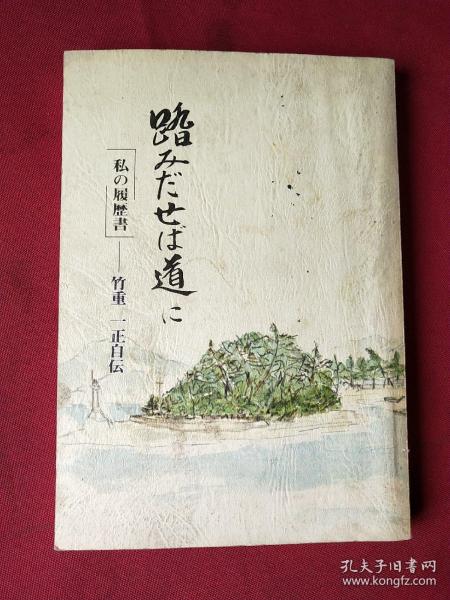 踏みだせば道に
私の履歴書
——竹重 一正自伝
孔夫子旧书网
www.kongfz.com